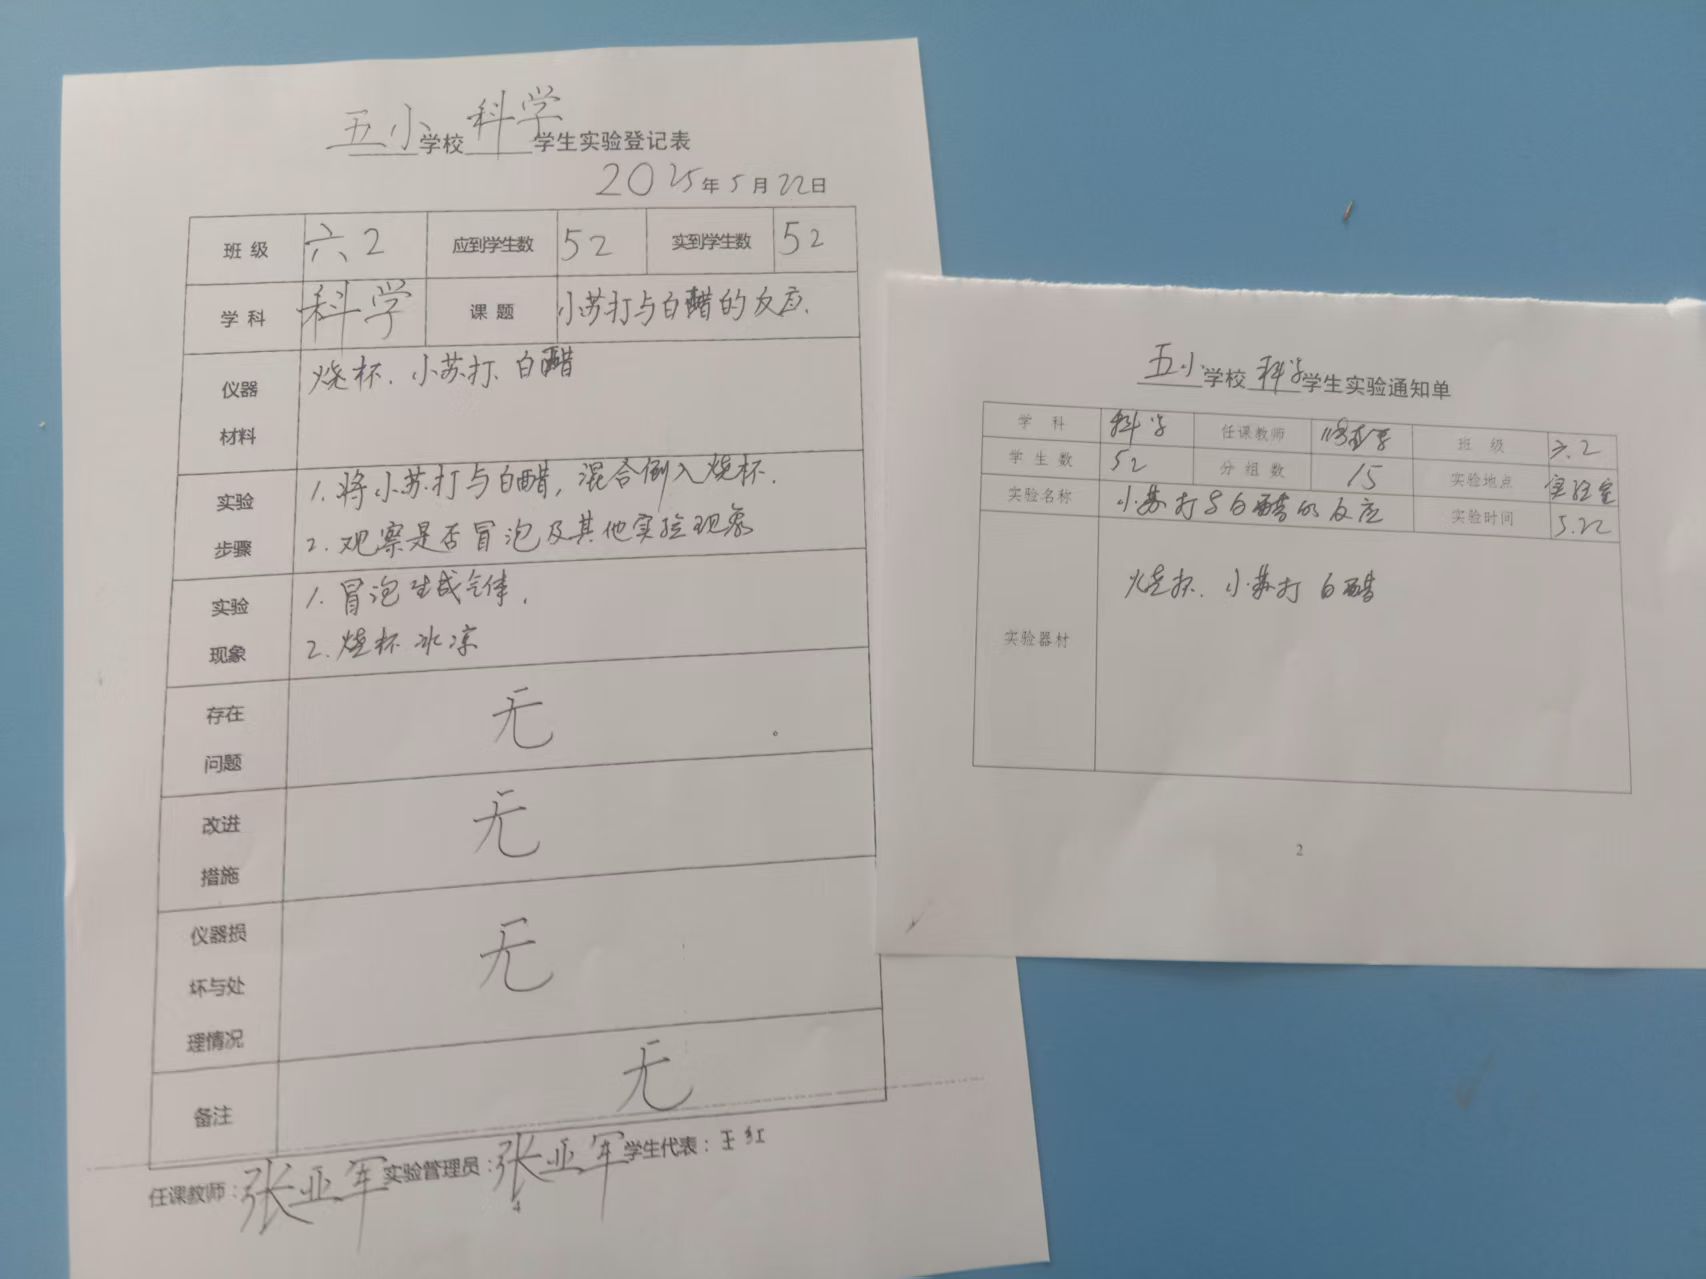 五小学校科学学生实验登记表
2025年5月22日
班级 六2 应到学生数 52 实到学生数 52
学科 科学 课题 小苏打与白醋的反应.
仪器材料 烧杯、小苏打、白醋
实验步骤 1. 将小苏打与白醋,混合倒入烧杯.
2. 观察是否冒泡及其他实验现象
实验现象 1. 冒泡生成气体.
2. 烧杯冰凉
存在问题 无
改进措施 无
仪器损坏与处理情况 无
备注 无
任课教师:张亚军 实验管理员:张亚军 学生代表:王红
4
五小学校科学学生实验通知单
学科 科学 任课教师 班级 六.2
学生数 52 分组数 15 实验地点 实验室
实验名称 小苏打与白醋的反应 实验时间 5.22
实验器材 烧杯、小苏打 白醋
2